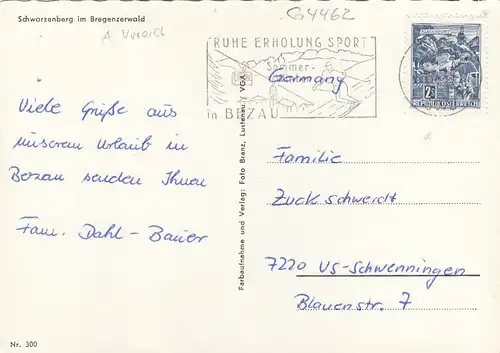 Schwarzenberg im Bregenzerwald
G4462
RUHE ERHOLUNG SPORT
Sommer-
Germany
in BEZAU
2S
REPUBLIK ÖSTERREICH
Viele Grüße aus
unserem Urlaub in
Bezau senden Ihnen
Fam. Dahl - Bauer
Farbaufnahme und Verlag: Foto Branz, Lustenau / VGA
Familie
Zuckschwerdt
7220 VS-Schwenningen
Blauenstr. 7
Nr. 300